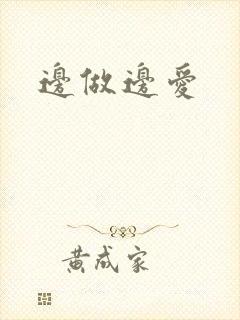 邊做邊愛
黃成家